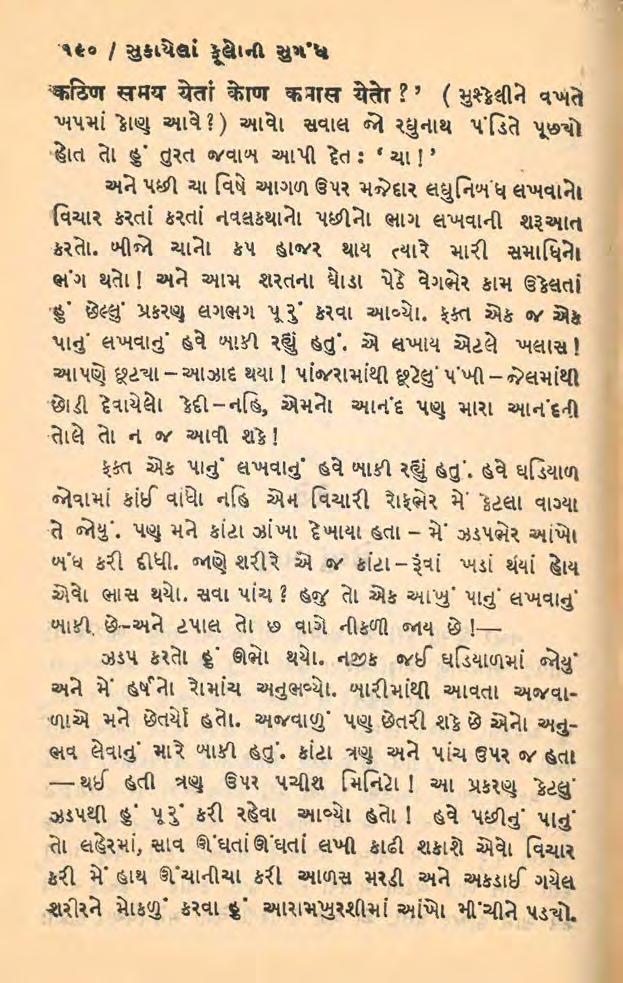 ૧૯૦ / સુકાયેલાં ફૂલોની સુગંધ
कठिण समय येतां कोण कामास येतो?’ ( મુશ્કેલીને વખતે
ખપમાં કોણ આવે?) આવો સવાલ જો રઘુનાથ પંડિતે પૂછ્યો
હોત તો હું તુરત જવાબ આપી દેત : ‘ ચા !’
અને પછી ચા વિષે આગળ ઉપર મજેદાર લઘુનિબંધ લખવાનો
વિચાર કરતાં કરતાં નવલકથાનો પછીનો ભાગ લખવાની શરૂઆત
કરતો. બીજો ચાનો કપ હાજર થાય ત્યારે મારી સમાધિનો
ભંગ થતો! અને આમ શરતના ઘોડા પેઠે વેગભેર કામ ઉકેલતાં
હું છેલ્લું પ્રકરણ લગભગ પૂરું કરવા આવ્યો. ફક્ત એક જ એક
પાનું લખવાનું હવે બાકી રહ્યું હતું. એ લખાય એટલે ખલાસ!
આપણે છૂટ્યા – આઝાદ થયા! પાંજરામાંથી છૂટેલું પંખી – જેલમાંથી
છોડી દેવાયેલો કેદી – નહિ, એમનો આનંદ પણ મારા આનંદની
તોલે તો ન જ આવી શકે!
ફક્ત એક પાનું લખવાનું હવે બાકી રહ્યું હતું. હવે ઘડિયાળ
જોવામાં કાંઈ વાંધો નહિ એમ વિચારી રોફભેર મેં કેટલા વાગ્યા
તે જોયું. પણ મને કાંટા ઝાંખા દેખાયા હતા – મેં ઝડપભેર આંખો
બંધ કરી દીધી. જાણે શરીરે એ જ કાંટા – રૂંવાં ખડાં થયાં હોય
એવો ભાસ થયો. સવા પાંચ? હજુ તો એક આખું પાનું લખવાનું
બાકી છે–અને ટપાલ તો છ વાગે નીકળી જાય છે!—
ઝડપ કરતો હું ઊભો થયો. નજીક જઈ ઘડિયાળમાં જોયું
અને મેં હર્ષનો રોમાંચ અનુભવ્યો. બારીમાંથી આવતા અજવા-
ળાએ મને છેતર્યો હતો. અજવાળું પણ છેતરી શકે છે એનો અનુ-
ભવ લેવાનું મારે બાકી હતું. કાંટા ત્રણ અને પાંચ ઉપર જ હતા
— થઈ હતી ત્રણ ઉપર પચીશ મિનિટો! આ પ્રકરણ કેટલું
ઝડપથી હું પૂરું કરી રહેવા આવ્યો હતો! હવે પછીનું પાનું
તો લહેરમાં, સાવ ઊંઘતાં ઊંઘતાં લખી કાઢી શકાશે એવો વિચાર
કરી મેં હાથ ઊંચાનીચા કરી આળસ મરડી અને અકડાઈ ગયેલ
શરીરને મોકળું કરવા હું આરામખુરશીમાં આંખો મીંચીને પડ્યો.